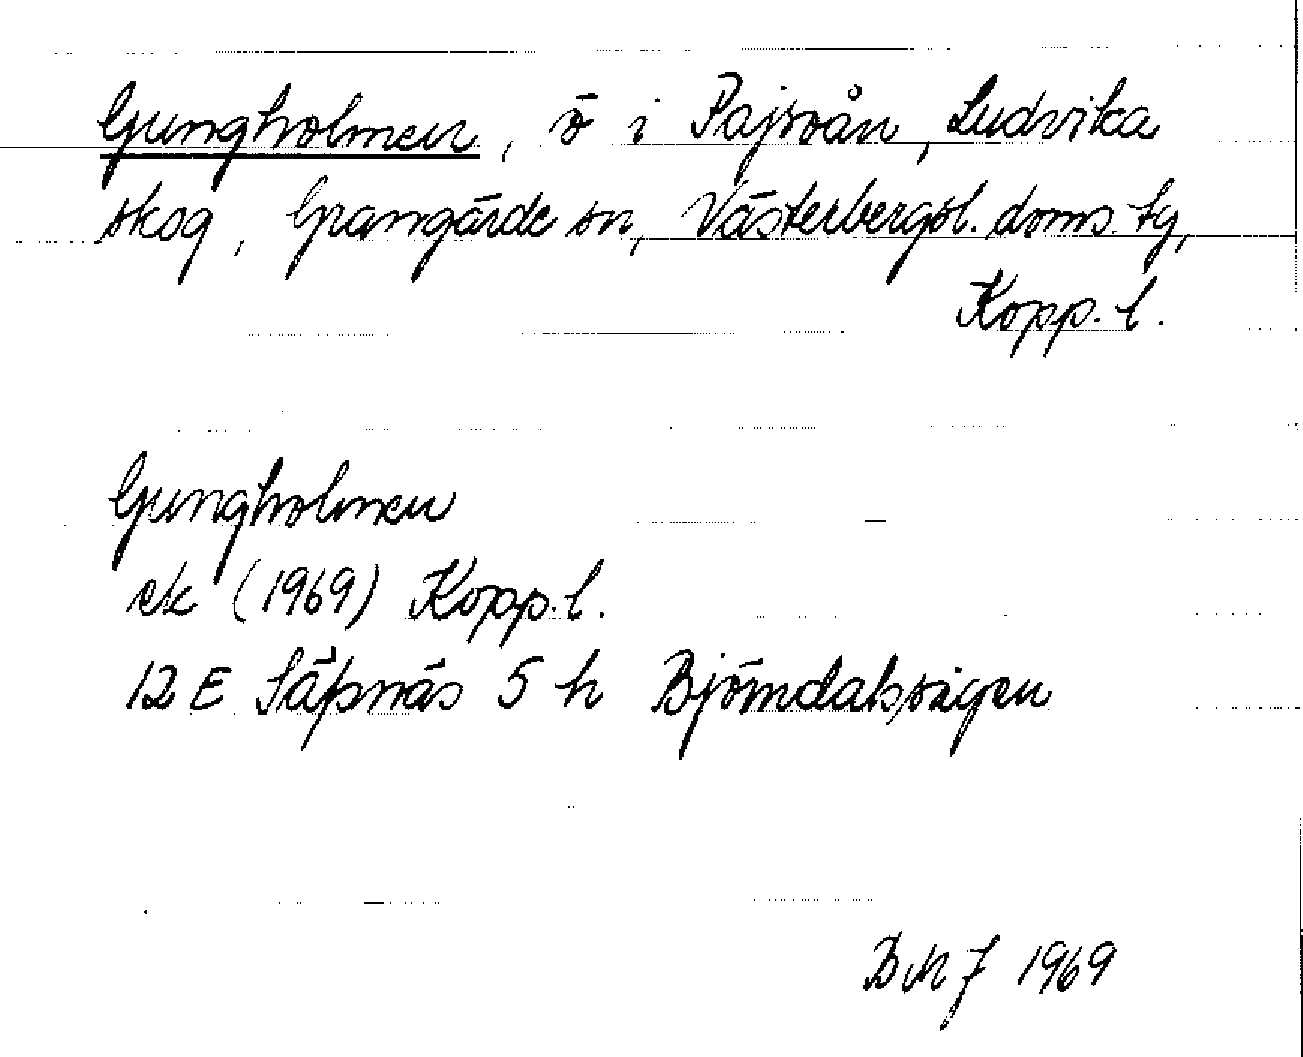 Gungholmen, ö i Pajsoån, Ludvika
skog, Grangärde sn, Västerbergsl. doms. tg,
Kopp. l.
Gungholmen
ek (1969) Kopp. l.
12 E Säfsnäs 5 h Björndalsvägen
BMJ 1969